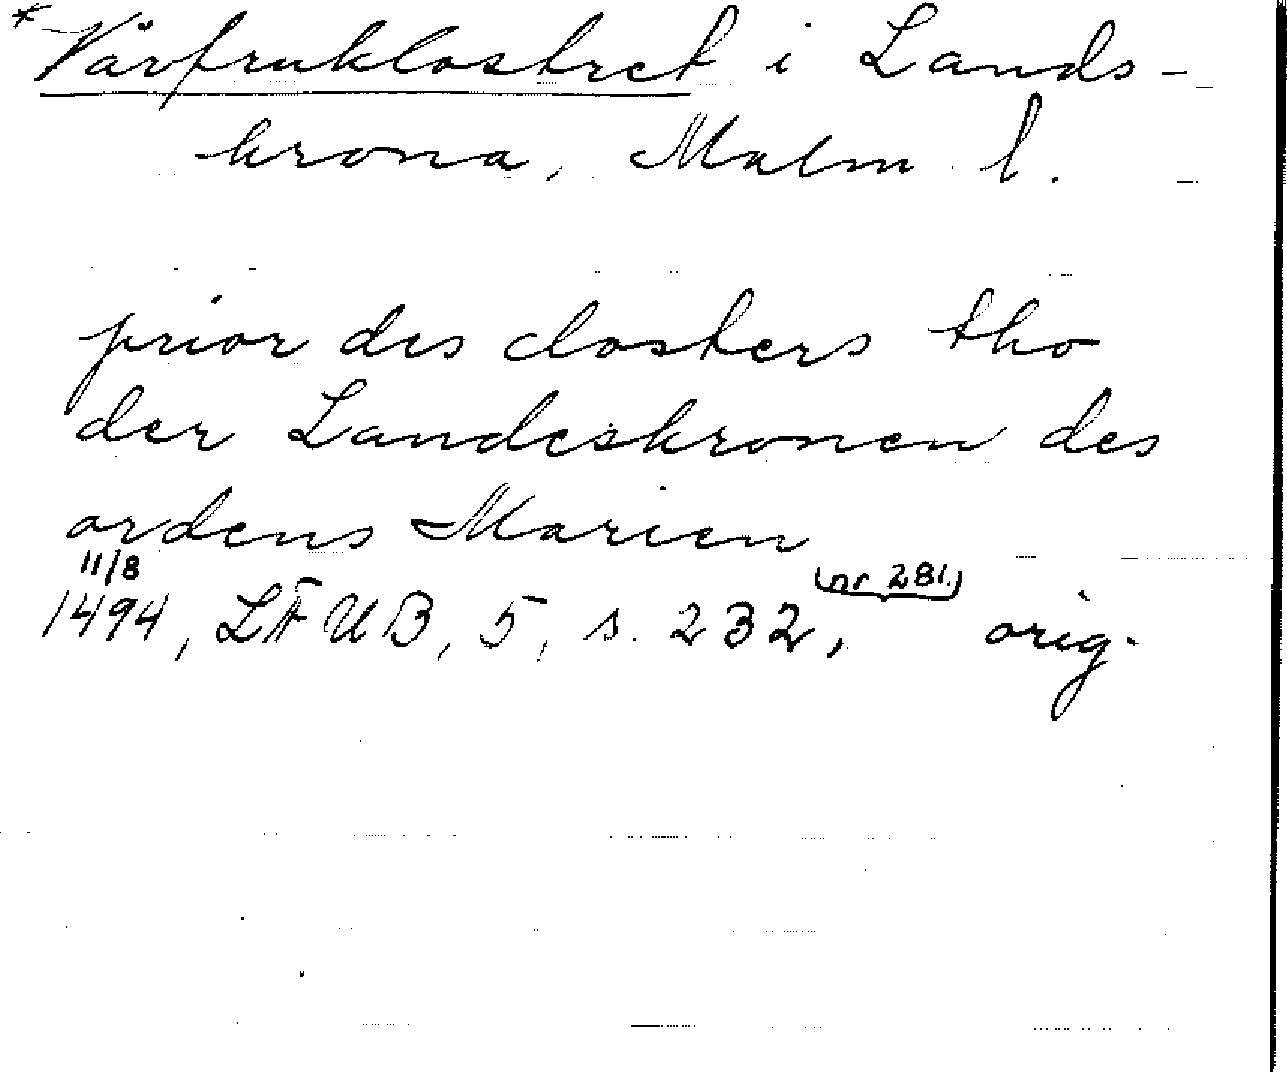 *Vårfruklostret i Lands-
krona, Malm l.
prior des closters tho
der Landeskronen des
ordens Marien
11/8 (nr 281)
1494, LFUB, 5, s. 232, orig.